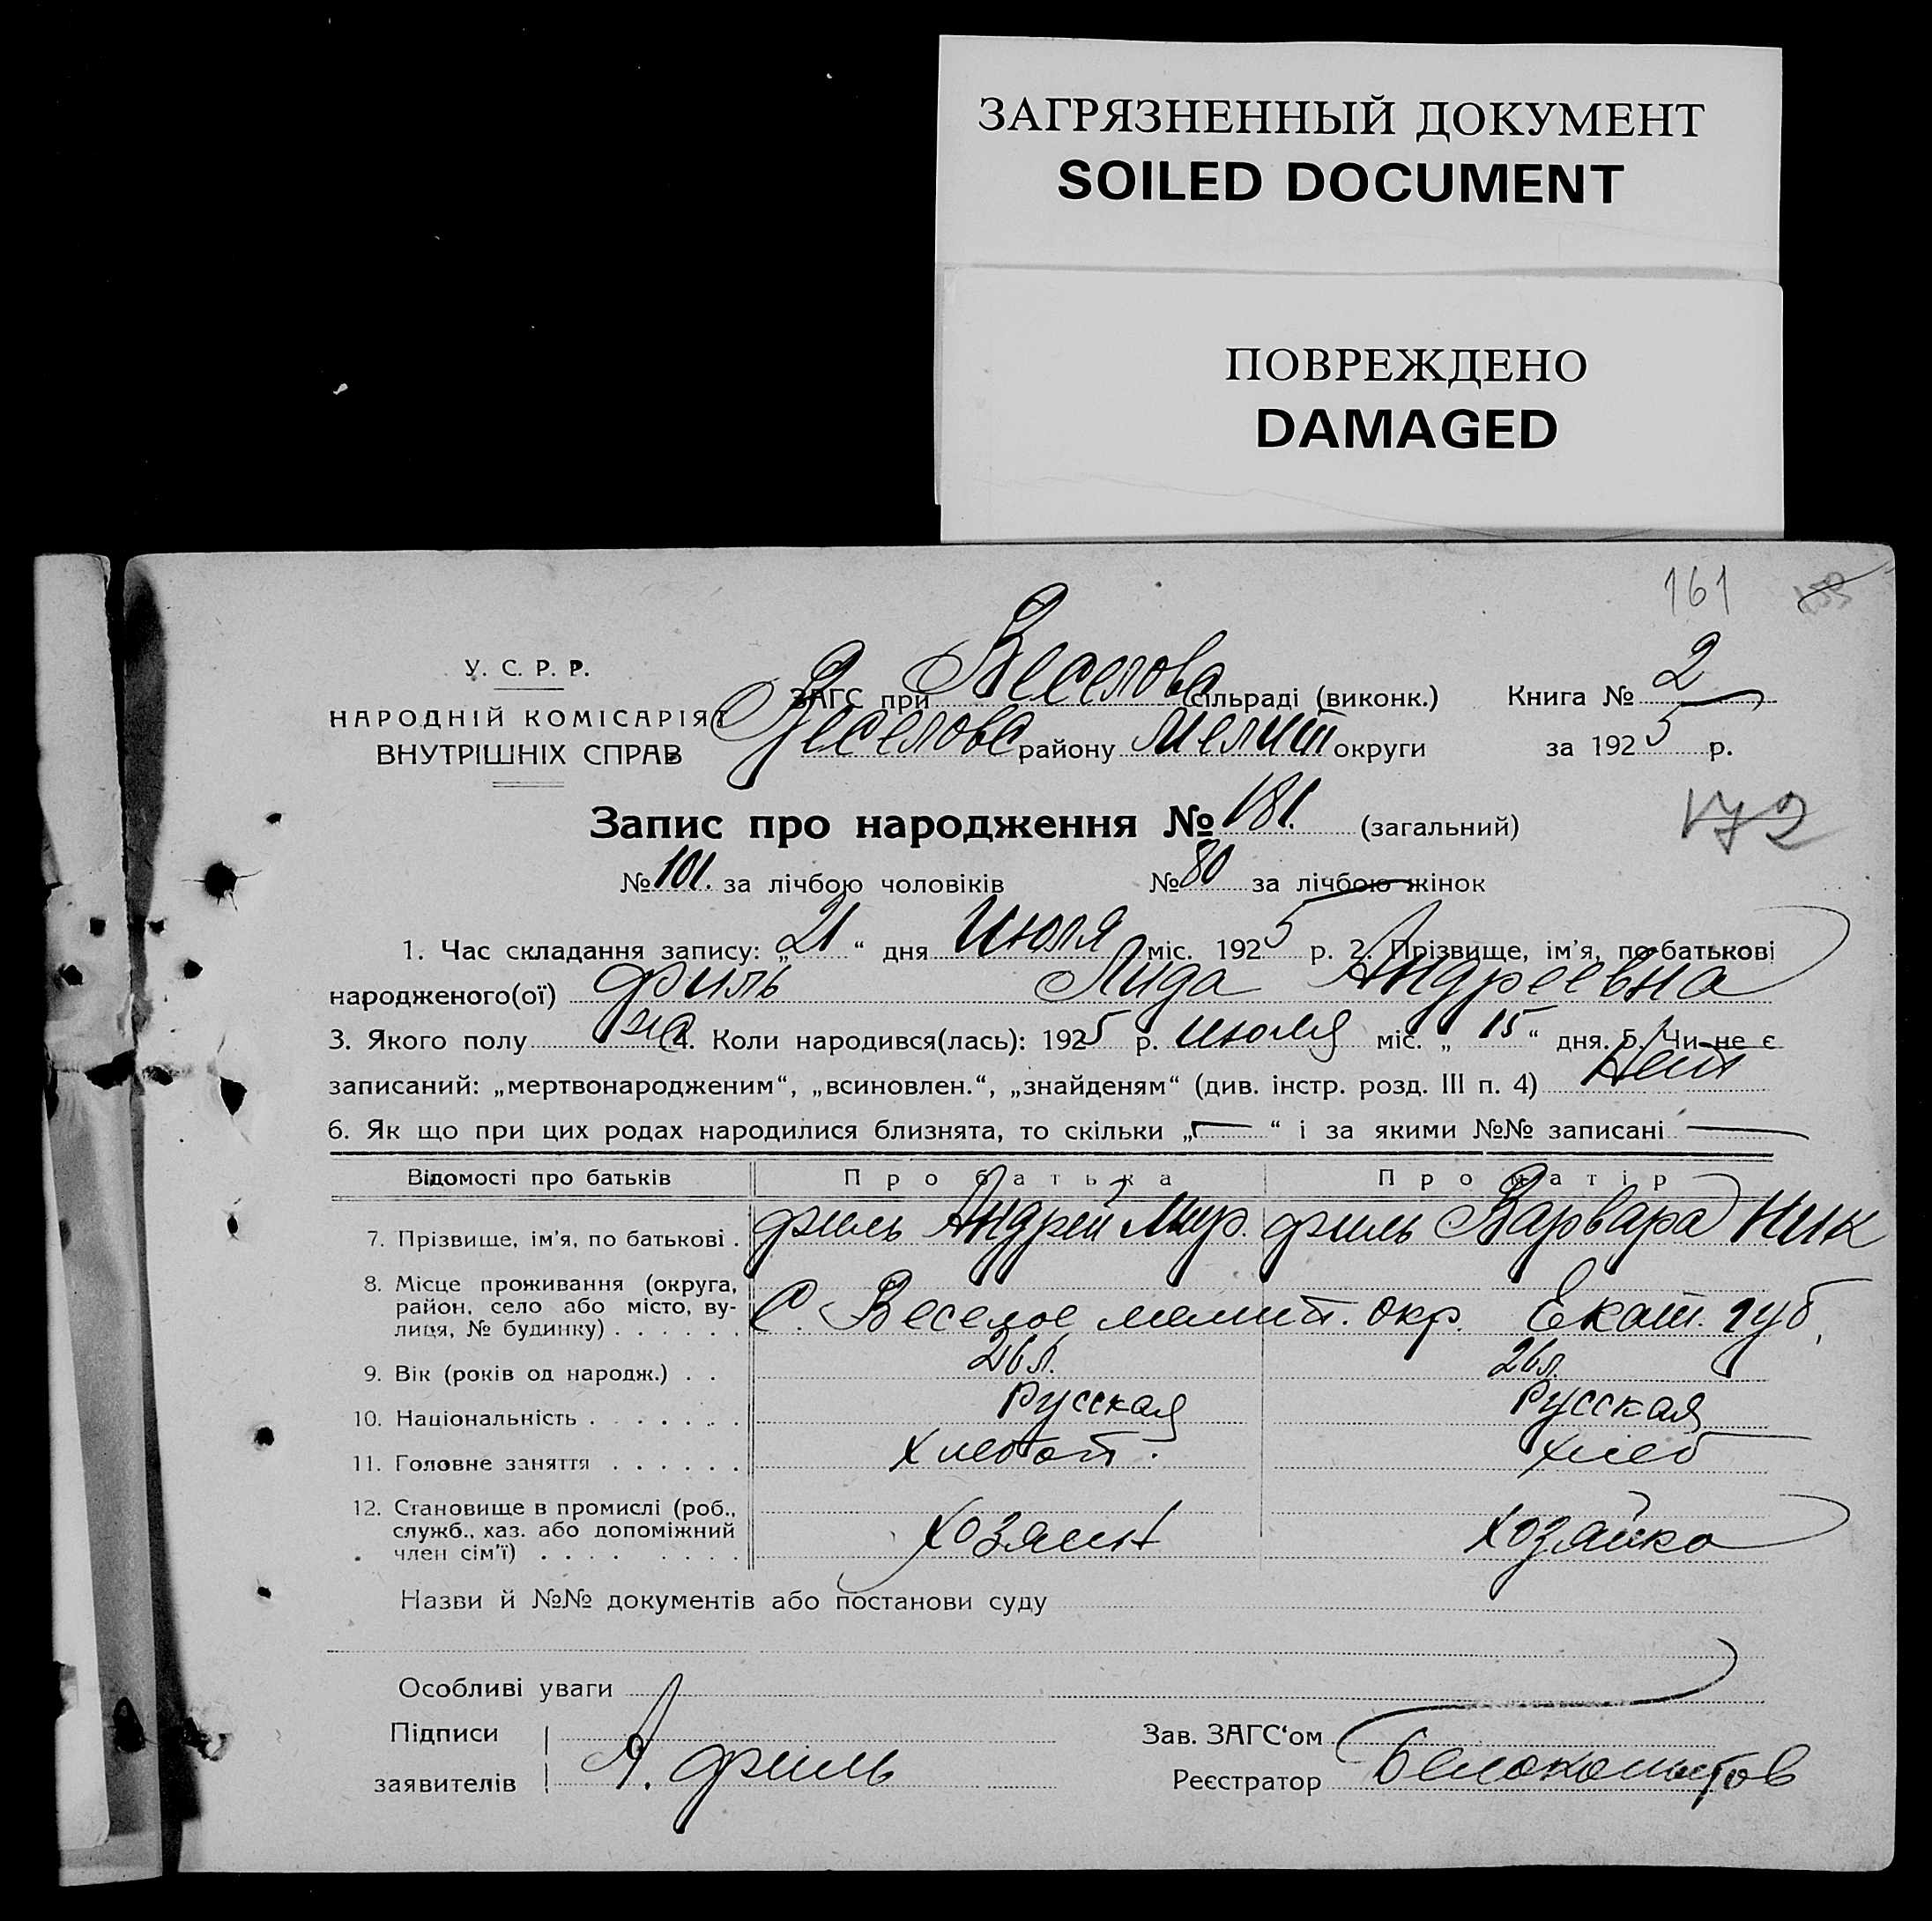 ЗАГРЯЗНЕННЫЙ ДОКУМЕНТ
SOILED DOCUMENT
ПОВРЕЖДЕНО
DAMAGED
161
У. С. Р. Р.
НАРОДНІЙ КОМІСАРІЯТ
ВНУТРІШНІХ СПРАВ
ЗАГС при Веселовс сільраді (виконк.) Книга № 2
Веселовс району Мелит округи за 1925 р.
Запис про народження № 181. (загальний) 172
№ 101. за лічбою чоловіків № 80 за лічбою жінок
1. Час складання запису: „21“ дня Июля міс. 1925 р. 2. Прізвище, ім’я, по-батькові
народженого(ої) Филь Лида Андреевна
3. Якого полу 4. Коли народився(лась): 1925 р. июля міс. „15“ дня. 5. Чи не є
записаний: „мертвонародженим“, „всиновлен.“, „знайденям“ (див. інстр. розд. III п. 4) Нет
6. Як що при цих родах народилися близнята, то скільки „—“ і за якими №№ записані —
Відомості про батьків Про батька Про матір
7. Прізвище, ім’я, по батькові . Филь Андрей Мир. Филь Варвара Ник
8. Місце проживання (округа,
район, село або місто, ву-
лиця, № будинку) . . . . . . С. Веселое мелит. окр. Екат. губ.
9. Вік (років од народж.) . . 26 л. 26 л.
10. Національність . . . . . . . Русская Русская
11. Головне заняття . . . . . . Хлебот. хлеб
12. Становище в промислі (роб.,
служб., хаз. або допоміжний
член сім’ї) . . . . . . . . . хозяин хозяйка
Назви й №№ документів або постанови суду
Особливі уваги
Підписи Зав. ЗАГС‘ом
заявителів А. Филь Реєстратор Белокопытов